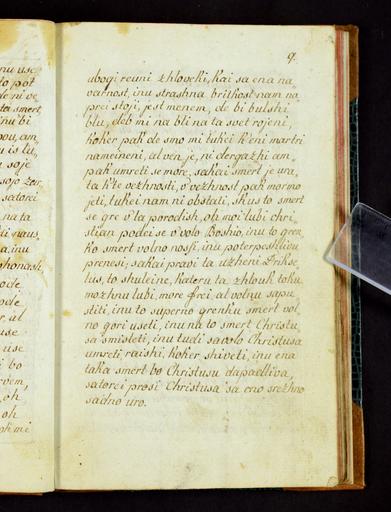 9.
ubogi reuni zhloveki, kai sa ena na
varnost, inu strashna britkost nam na
prei stoji, jest menem, de bi bulshi
blu, deb mi na bli na ta svet rojeni,
koker pak de smo mi tukei k'eni martri
nameineni, al ven je, ni dergazhi am
pak umreti se more, sakai smert je ura
ta k'te vezhnosti, o vezhnost pak mormo
jeti, tukei nam ni obstati, skus to smert
se gre v'la porodish, oh moi lubi chri
stian podei se v'volo Boshio, inu to gren
ko smert volno nosi, inu poterpeshlivu
prenesi, sakai pravi ta uzheni
tus, to shuleine, kateru ta zhlouk toku
mozhnu lubi, more frei, al volnu sapu
stiti, inu to superno grenku smert vol
no gori useti, inu na to smert Christu
sa smisleti, inu tudi sa volo Christusa
umreti, raishi, koker shiveti, inu ena
taka smert bo Christusu dapadliva,
satorei prosi Christusa sa eno srezhno
sadno uro.
nu use
to pot
ta smert
inu bi
u soje
satorei
na ta
a, inu
ohonash
pode
use
bo
oh
oh